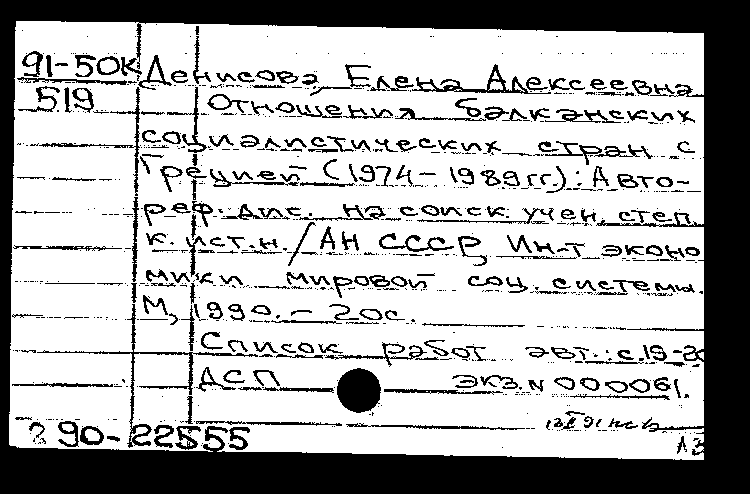 91-50к Денисова, Елена Алексеевна
519 Отношения балканских
социалистических стран с
Грецией (1974-1989гг.): Авто-
реф. дис. на соиск. учен. степ.
к. ист.н. / АН СССР, Ин-т эконо
мики мировой соц. системы.
М, 1990. - 20с.
Список работ авт.: с.19-20
ДСП экз. N 000061.
90-22555